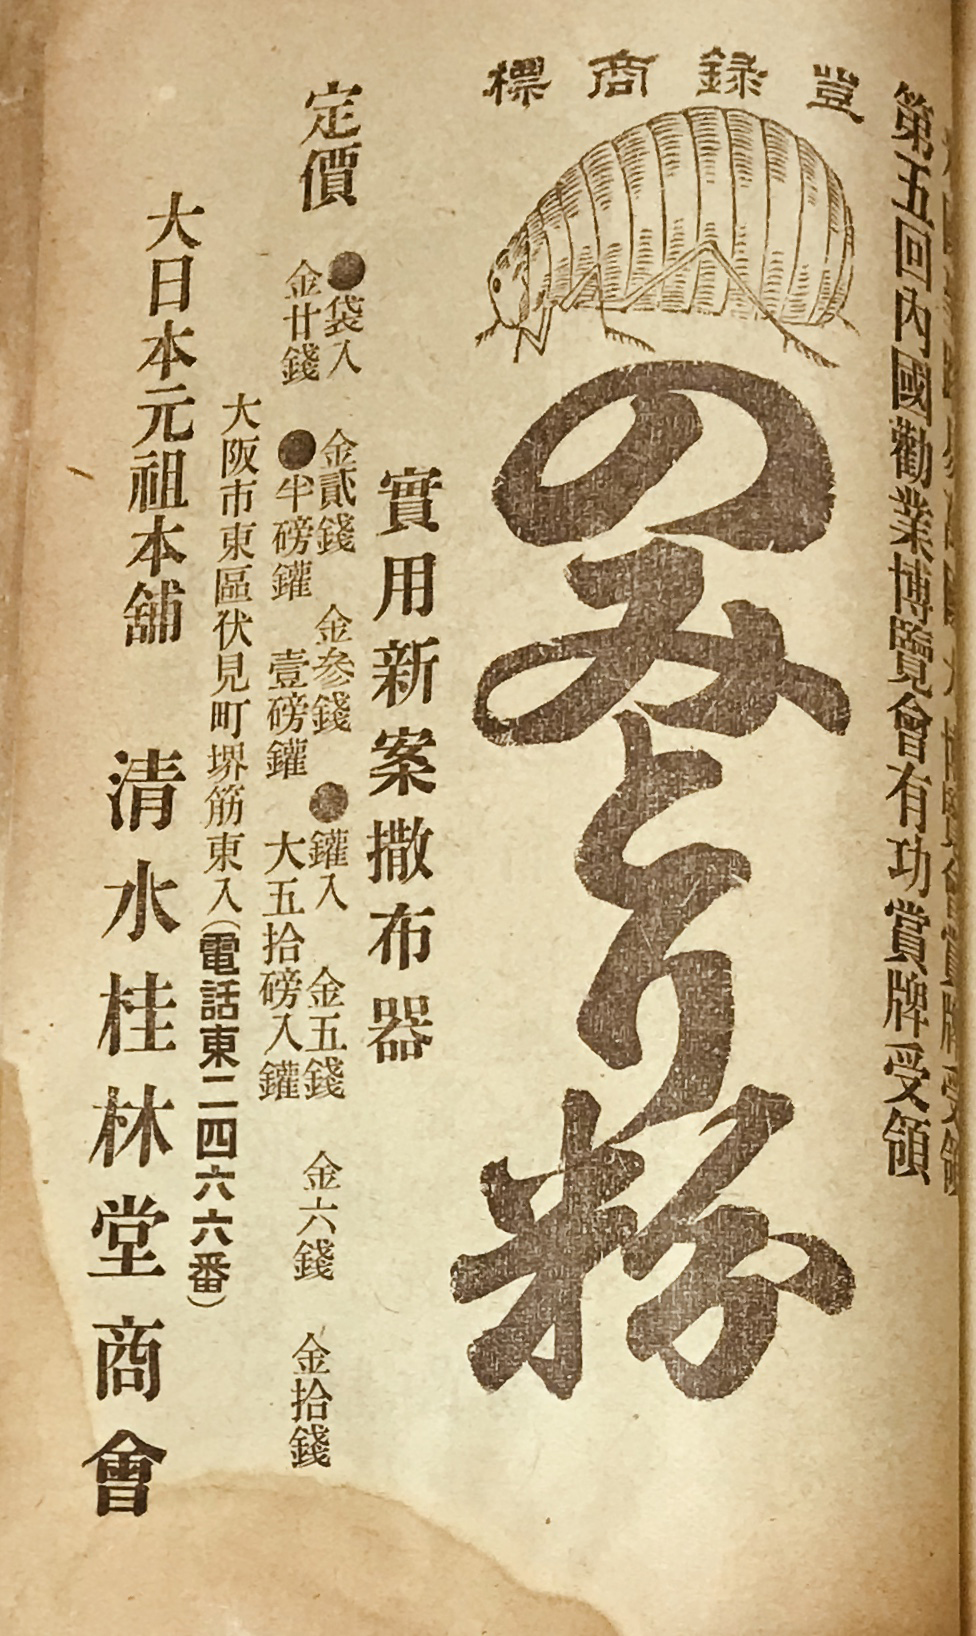 第五回內國勸業博覽會有功賞牌受領
登録商標
のみとり粉
實用新案撒布器
定價
●袋入 金貳錢 金参錢 ●鑵入 金五錢 金六錢 金拾錢
金廿錢 ●半磅鑵 壹磅鑵 大五拾磅入鑵
大阪市東區伏見町堺筋東入(電話東二四六六番)
大日本元祖本舖 清水桂林堂商會